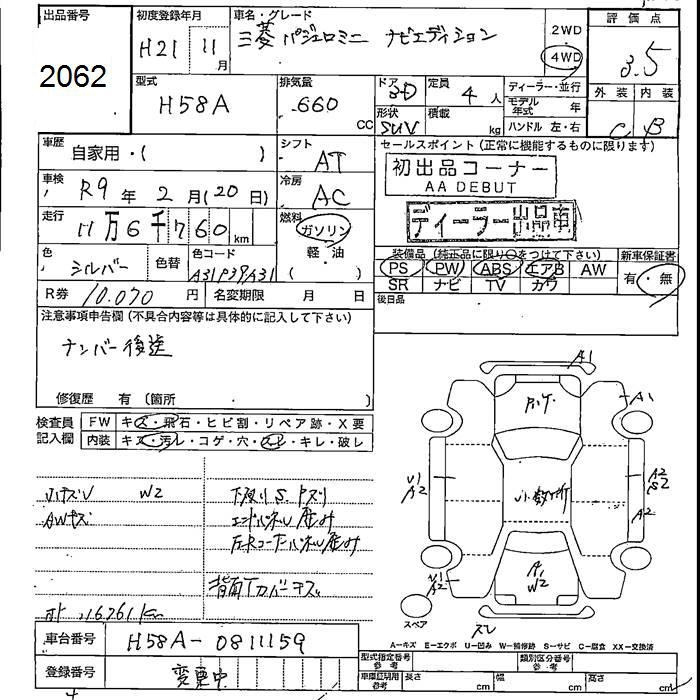 出品番号
2062
初度登録年月
H21 11月
車名・グレード
三菱 パジェロミニ ナビエディション
2WD
4WD
評価点
3.5
型式
H58A
排気量
660 CC
ドア
3D
形状
SUV
定員
4人
積載
kg
ディーラー・並行
モデル年式 年
ハンドル 左・右
外装 内装
C B
車歴
自家用・( )
シフト
AT
セールスポイント (正常に機能するものに限ります)
初出品コーナー
AA DEBUT
ディーラー出品車
車検
R9年2月(20日)
冷房
AC
走行
11万6千760km
燃料
ガソリン
軽・油
( )
色
シルバー
色替
色コード
A31P39A31
装備品 (純正品に限り○をつけて下さい)
PS PW ABS エアB AW
SR ナビ TV カワ
新車保証書
有・無
R券 10.070円
名変期限 月 日
後日品
注意事項申告欄 (不具合内容等は具体的に記入して下さい)
ナンバー後送
修復歴 有 (箇所 )
検査員記入欄
FW キズ・飛石・ヒビ割・リペア跡・X要
内装 キズ・汚レ・コゲ・穴・スレ・キレ・破レ
小キズU W2
AWキズ
下廻りS.Pズリ
背面Tカバーキズ
A1
A1
U1
A2
A2
S2
A2
A1
W2
U1
A2
スレ
スペア
A-キズ E-エクボ U-凹み W-補修跡 S-サビ C-腐食 XX-交換済
車台番号 H58A-0811159
登録番号 変更中
型式指定番号 参考
類別区分番号 参考
車庫証明用 参考
長さ cm
幅 cm
高さ cm